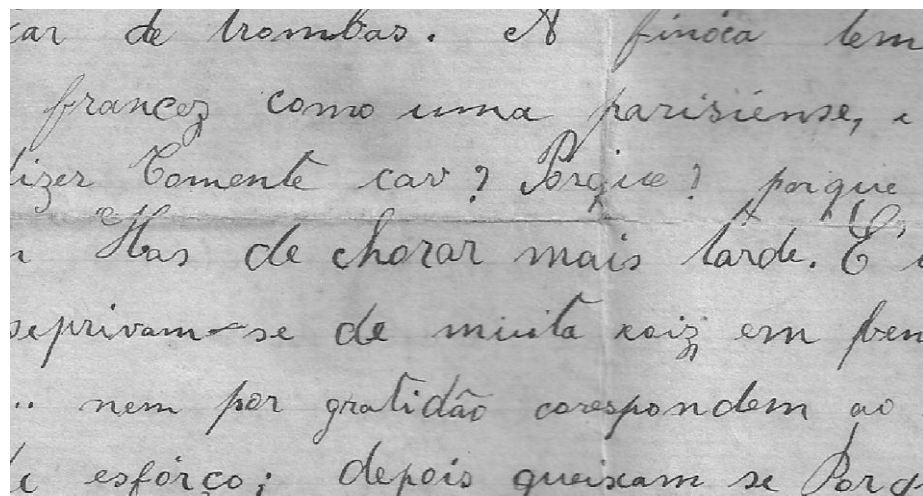 car de trombas. A finóca tem
francez como uma parisiense, e
dizer Comente cav? Porque? porque
Has de chorar mais tarde. E'
seprivam-se de muita coiz em ben
.. nem por gratidão corespondem ao
esfórço; depois queixam se Por